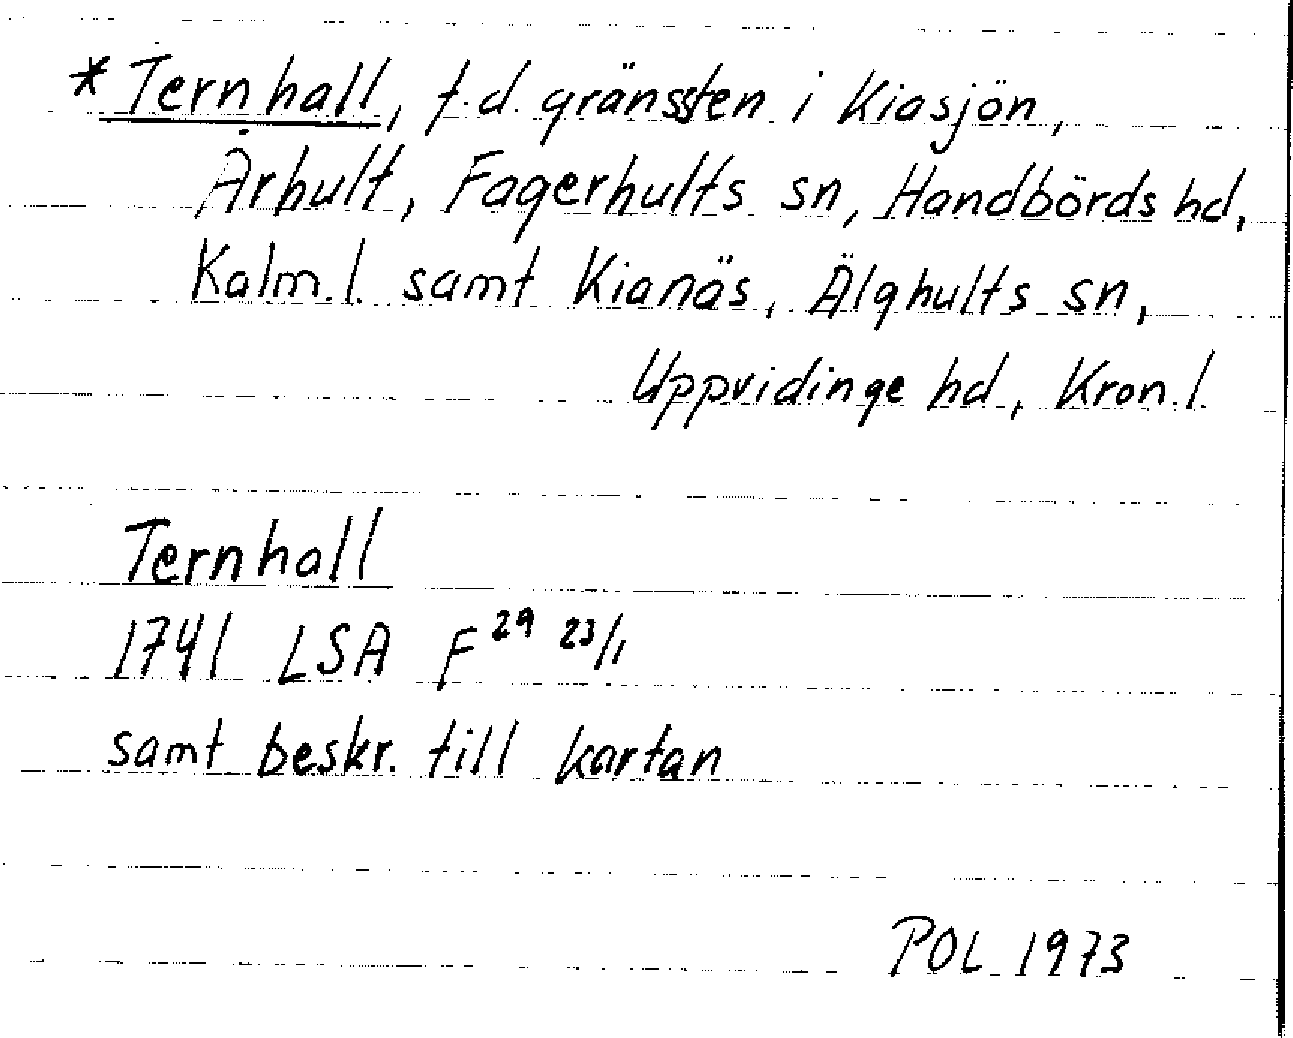 *Ternhall, f.d. gränssten i Kiasjön,
Århult, Fagerhults sn, Handbörds hd,
Kalm.l. samt Kianäs, Älghults sn,
Uppvidinge hd, Kron.l.
Ternhall
1741 LSA F 29 23/1
samt beskr. till kartan
POL 1973